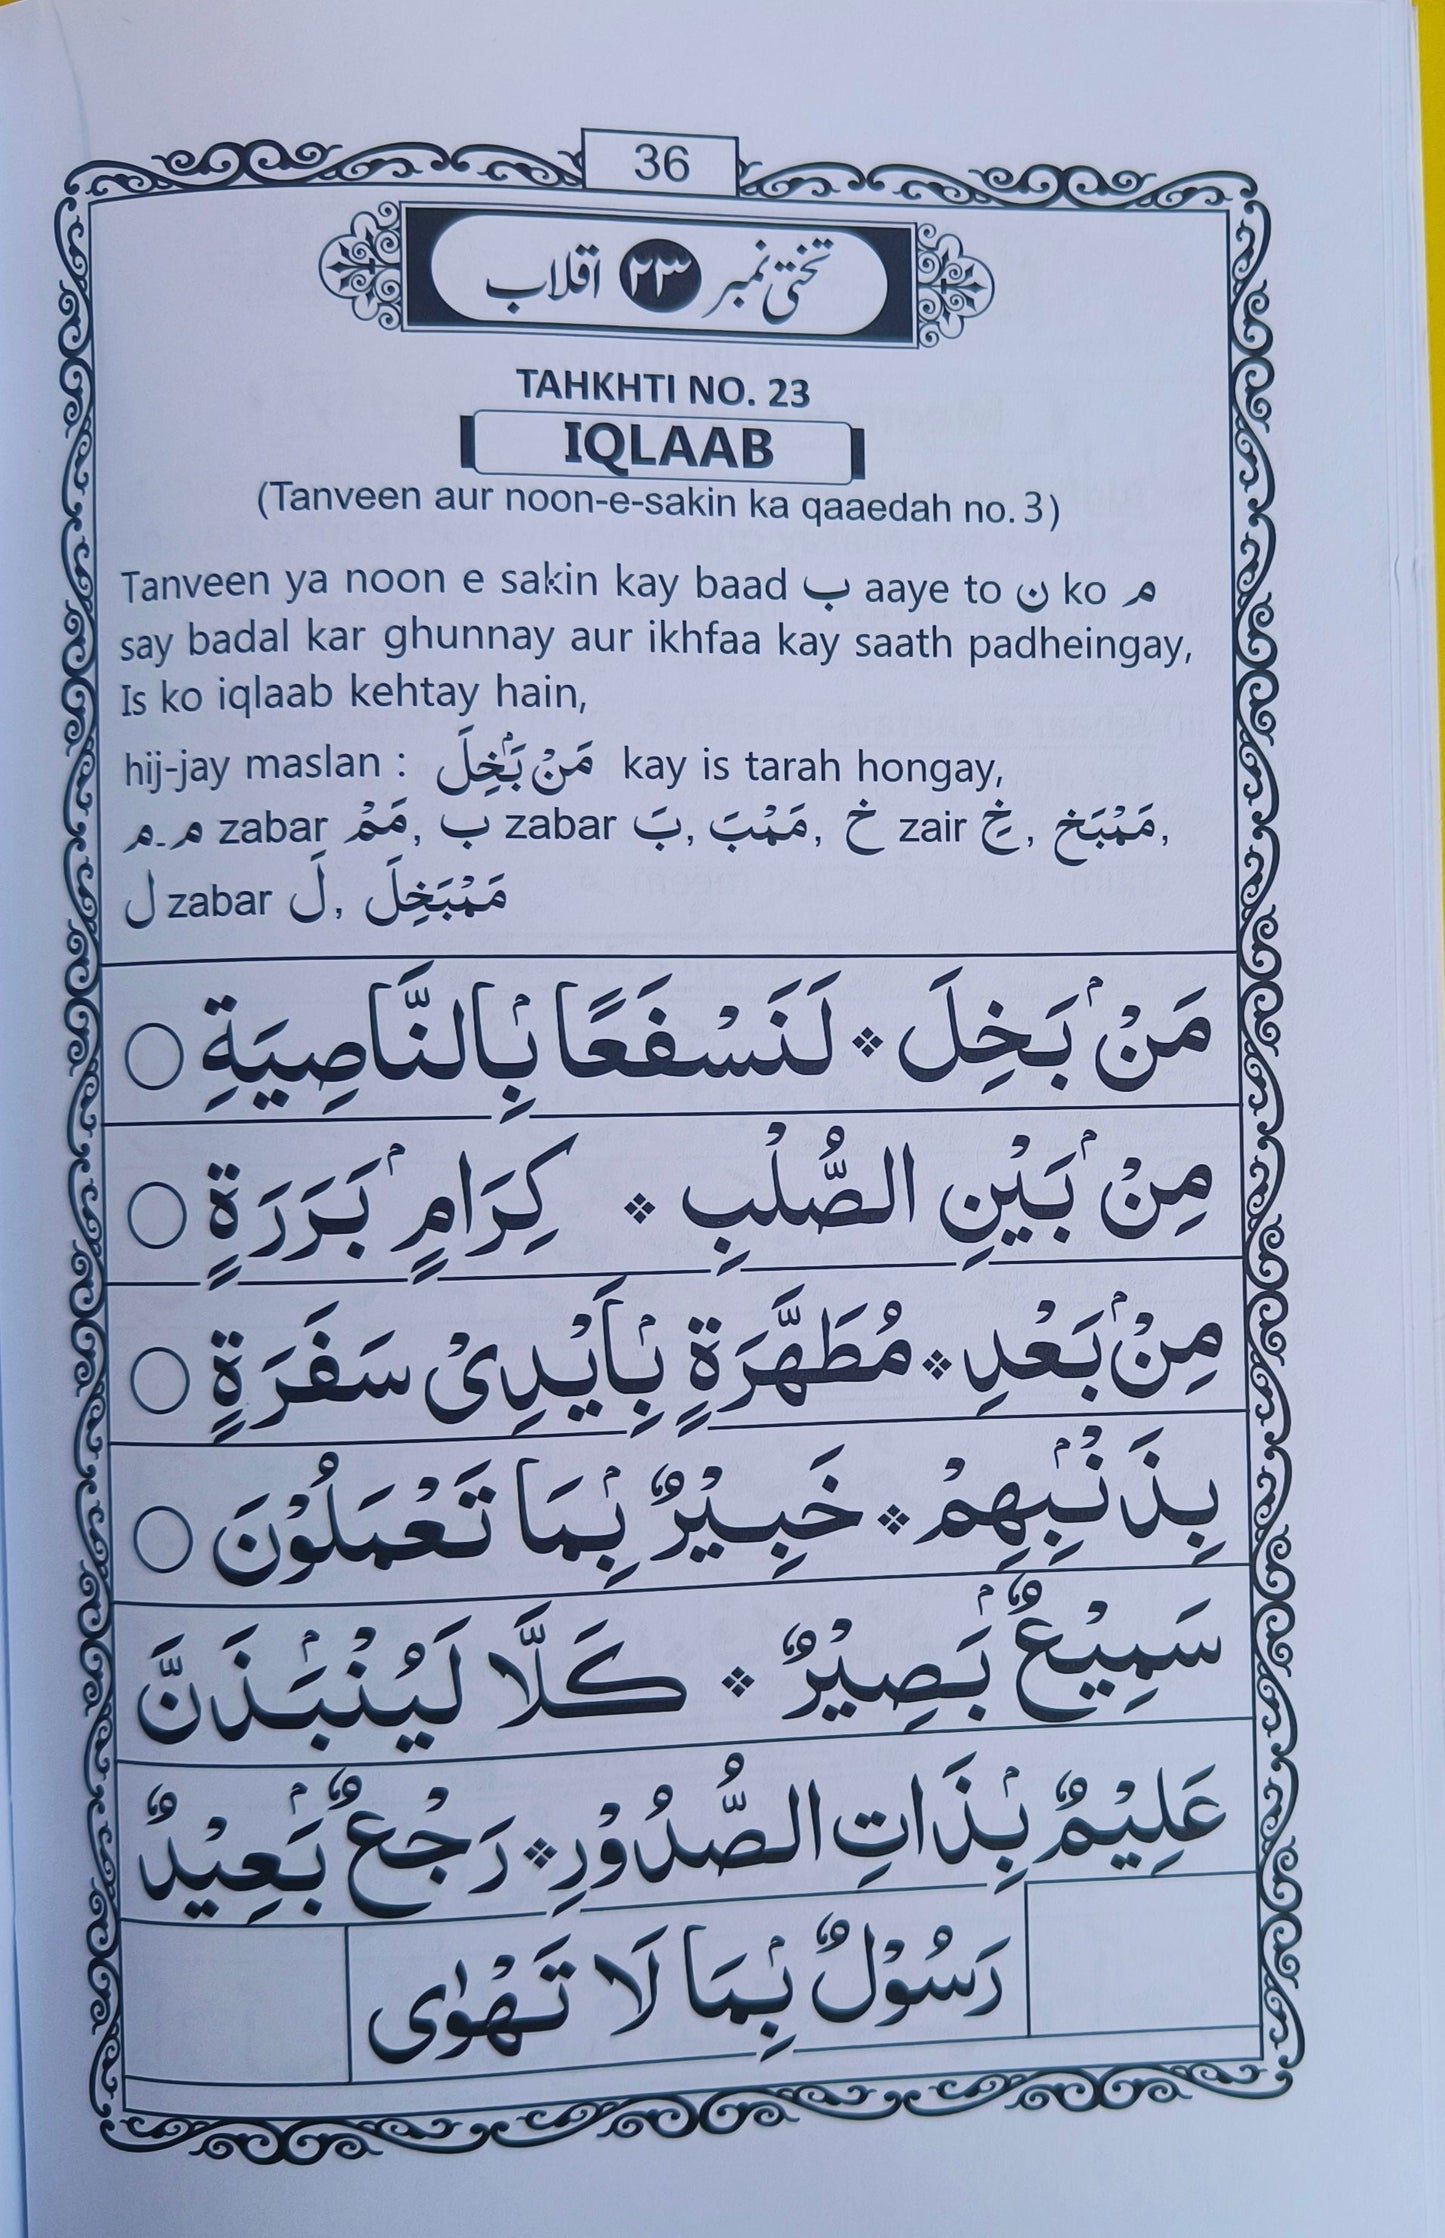 36
تختی نمبر ۲۳ اقلاب
TAHKHTI NO. 23
IQLAAB
(Tanveen aur noon-e-sakin ka qaaedah no.3)
Tanveen ya noon e sakin kay baad ب aaye to ن ko م
say badal kar ghunnay aur ikhfaa kay saath padheingay,
Is ko iqlaab kehtay hain,
hij-jay maslan : مَنْۢ بَخِلَ kay is tarah hongay,
م۔م zabar مَمْ, ب zabar بَ, مَمْبَ, خ zair خِ, مَمْبَخِ,
ل zabar لَ, مَمْبَخِلَ
مَنْۢ بَخِلَ ❖ لَنَسْفَعًاۢ بِالنَّاصِيَةِ ○
مِنْۢ بَيْنِ الصُّلْبِ ❖ كِرَامٍۢ بَرَرَةٍ ○
مِنْۢ بَعْدِ ❖ مُطَهَّرَةٍۢ بِاَيْدِىْ سَفَرَةٍ ○
بِذَنْۢبِهِمْ ❖ خَبِيْرٌۢ بِمَا تَعْمَلُوْنَ ○
سَمِيْعٌۢ بَصِيْرٌ ❖ كَلَّا لَيُنْۢبَذَنَّ
عَلِيْمٌۢ بِذَاتِ الصُّدُوْرِ ❖ رَجْعٌۢ بَعِيْدٌ
رَسُوْلٌۢ بِمَا لَا تَهْوٰى